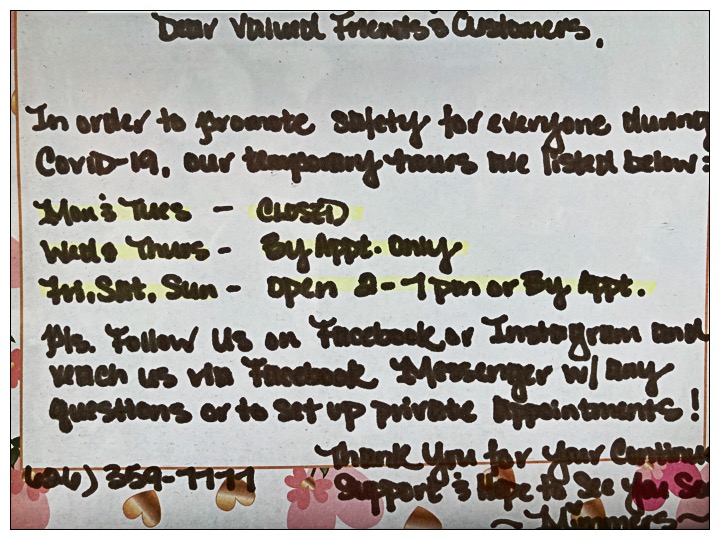 Dear Valued Friends & Customers,
In order to promote safety for everyone during
Covid-19, our temporary hours are listed below:
Mon & Tues - CLOSED
Wed & Thurs - By Appt. Only
Fri, Sat, Sun - Open 2-7pm or By Appt.
Pls. Follow us on Facebook or Instagram and
reach us via Facebook Messenger w/ any
questions or to set up private Appointments!
Thank you for your Continue
626) 359-7777
Support & Hope to See you So
~ Mimmers ~